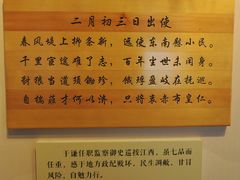 二月初三日出使
春风堤上柳条新，远使东南慰小民。
千里宦途难了志，百年尘世未闲身。
豺狼当道须锄珍，饿殍盈岐在抚巡。
自揣菲才何以济，只将衷赤布皇仁。
于谦任职监察御史巡按江西，虽七品而
任重，感于地方政纪败坏，民生凋敝，甘冒
风险，自勉力行。